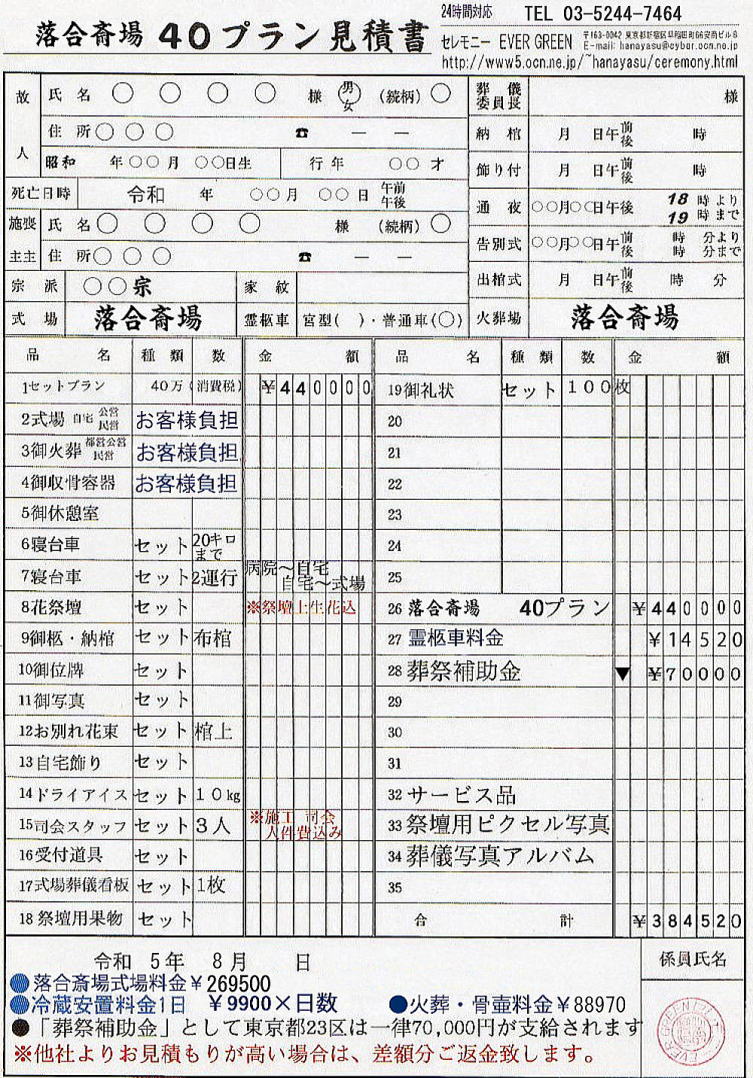 24時間対応 TEL 03-5244-7464
落合斎場 40プラン見積書
セレモニー EVER GREEN
〒163-0042 東京都新宿区早稲田町66安商ビル6
E-mail: hanayasu@cyber.ocn.ne.jp
http://www5.ocn.ne.jp/~hanayasu/ceremony.html
故人 氏名 ○ ○ ○ ○ 様 男 女 (続柄) ○
住所 ○ ○ ○ ☎ — —
昭和 年○○月 ○○日生 行年 ○○才
死亡日時 令和 年 ○○月 ○○日 午前 午後
施主 喪主 氏名 ○ ○ ○ ○ 様 (続柄) ○
住所 ○ ○ ○ ☎ — —
宗派 ○○宗 家紋
式場 落合斎場 霊柩車 宮型( )・普通車(○)
葬儀委員長 様
納棺 月 日午前後 時
飾り付 月 日午前後 時
通夜 ○○月○○日午後 18時より 19時まで
告別式 ○○月○○日午前後 時 分より 時 分まで
出棺式 月 日午前後 時 分
火葬場 落合斎場
品名 種類 数 金額
1セットプラン 40万(消費税) ¥440000
2式場 自宅 公営 民営 お客様負担
3御火葬 都営公営 民営 お客様負担
4御収骨容器 お客様負担
5御休憩室
6寝台車 セット 20キロまで
7寝台車 セット 2運行 病院〜自宅 自宅〜式場
8花祭壇 セット ※祭壇上生花込
9御柩・納棺 セット 布棺
10御位牌 セット
11御写真 セット
12お別れ花束 セット 棺上
13自宅飾り セット
14ドライアイス セット 10kg
15司会スタッフ セット 3人 ※施工 司会 人件費込み
16受付道具 セット
17式場葬儀看板 セット 1枚
18祭壇用果物 セット
品名 種類 数 金額
19御礼状 セット 100枚
20
21
22
23
24
25
26 落合斎場 40プラン ¥440000
27 霊柩車料金 ¥14520
28 葬祭補助金 ▼ ¥70000
29
30
31
32 サービス品
33 祭壇用ピクセル写真
34 葬儀写真アルバム
35
合計 ¥384520
令和 5年 8月 日
係員氏名
●落合斎場式場料金¥269500
●冷蔵安置料金1日 ¥9900×日数 ●火葬・骨壺料金¥88970
●「葬祭補助金」として東京都23区は一律70,000円が支給されます
※他社よりお見積もりが高い場合は、差額分ご返金致します。